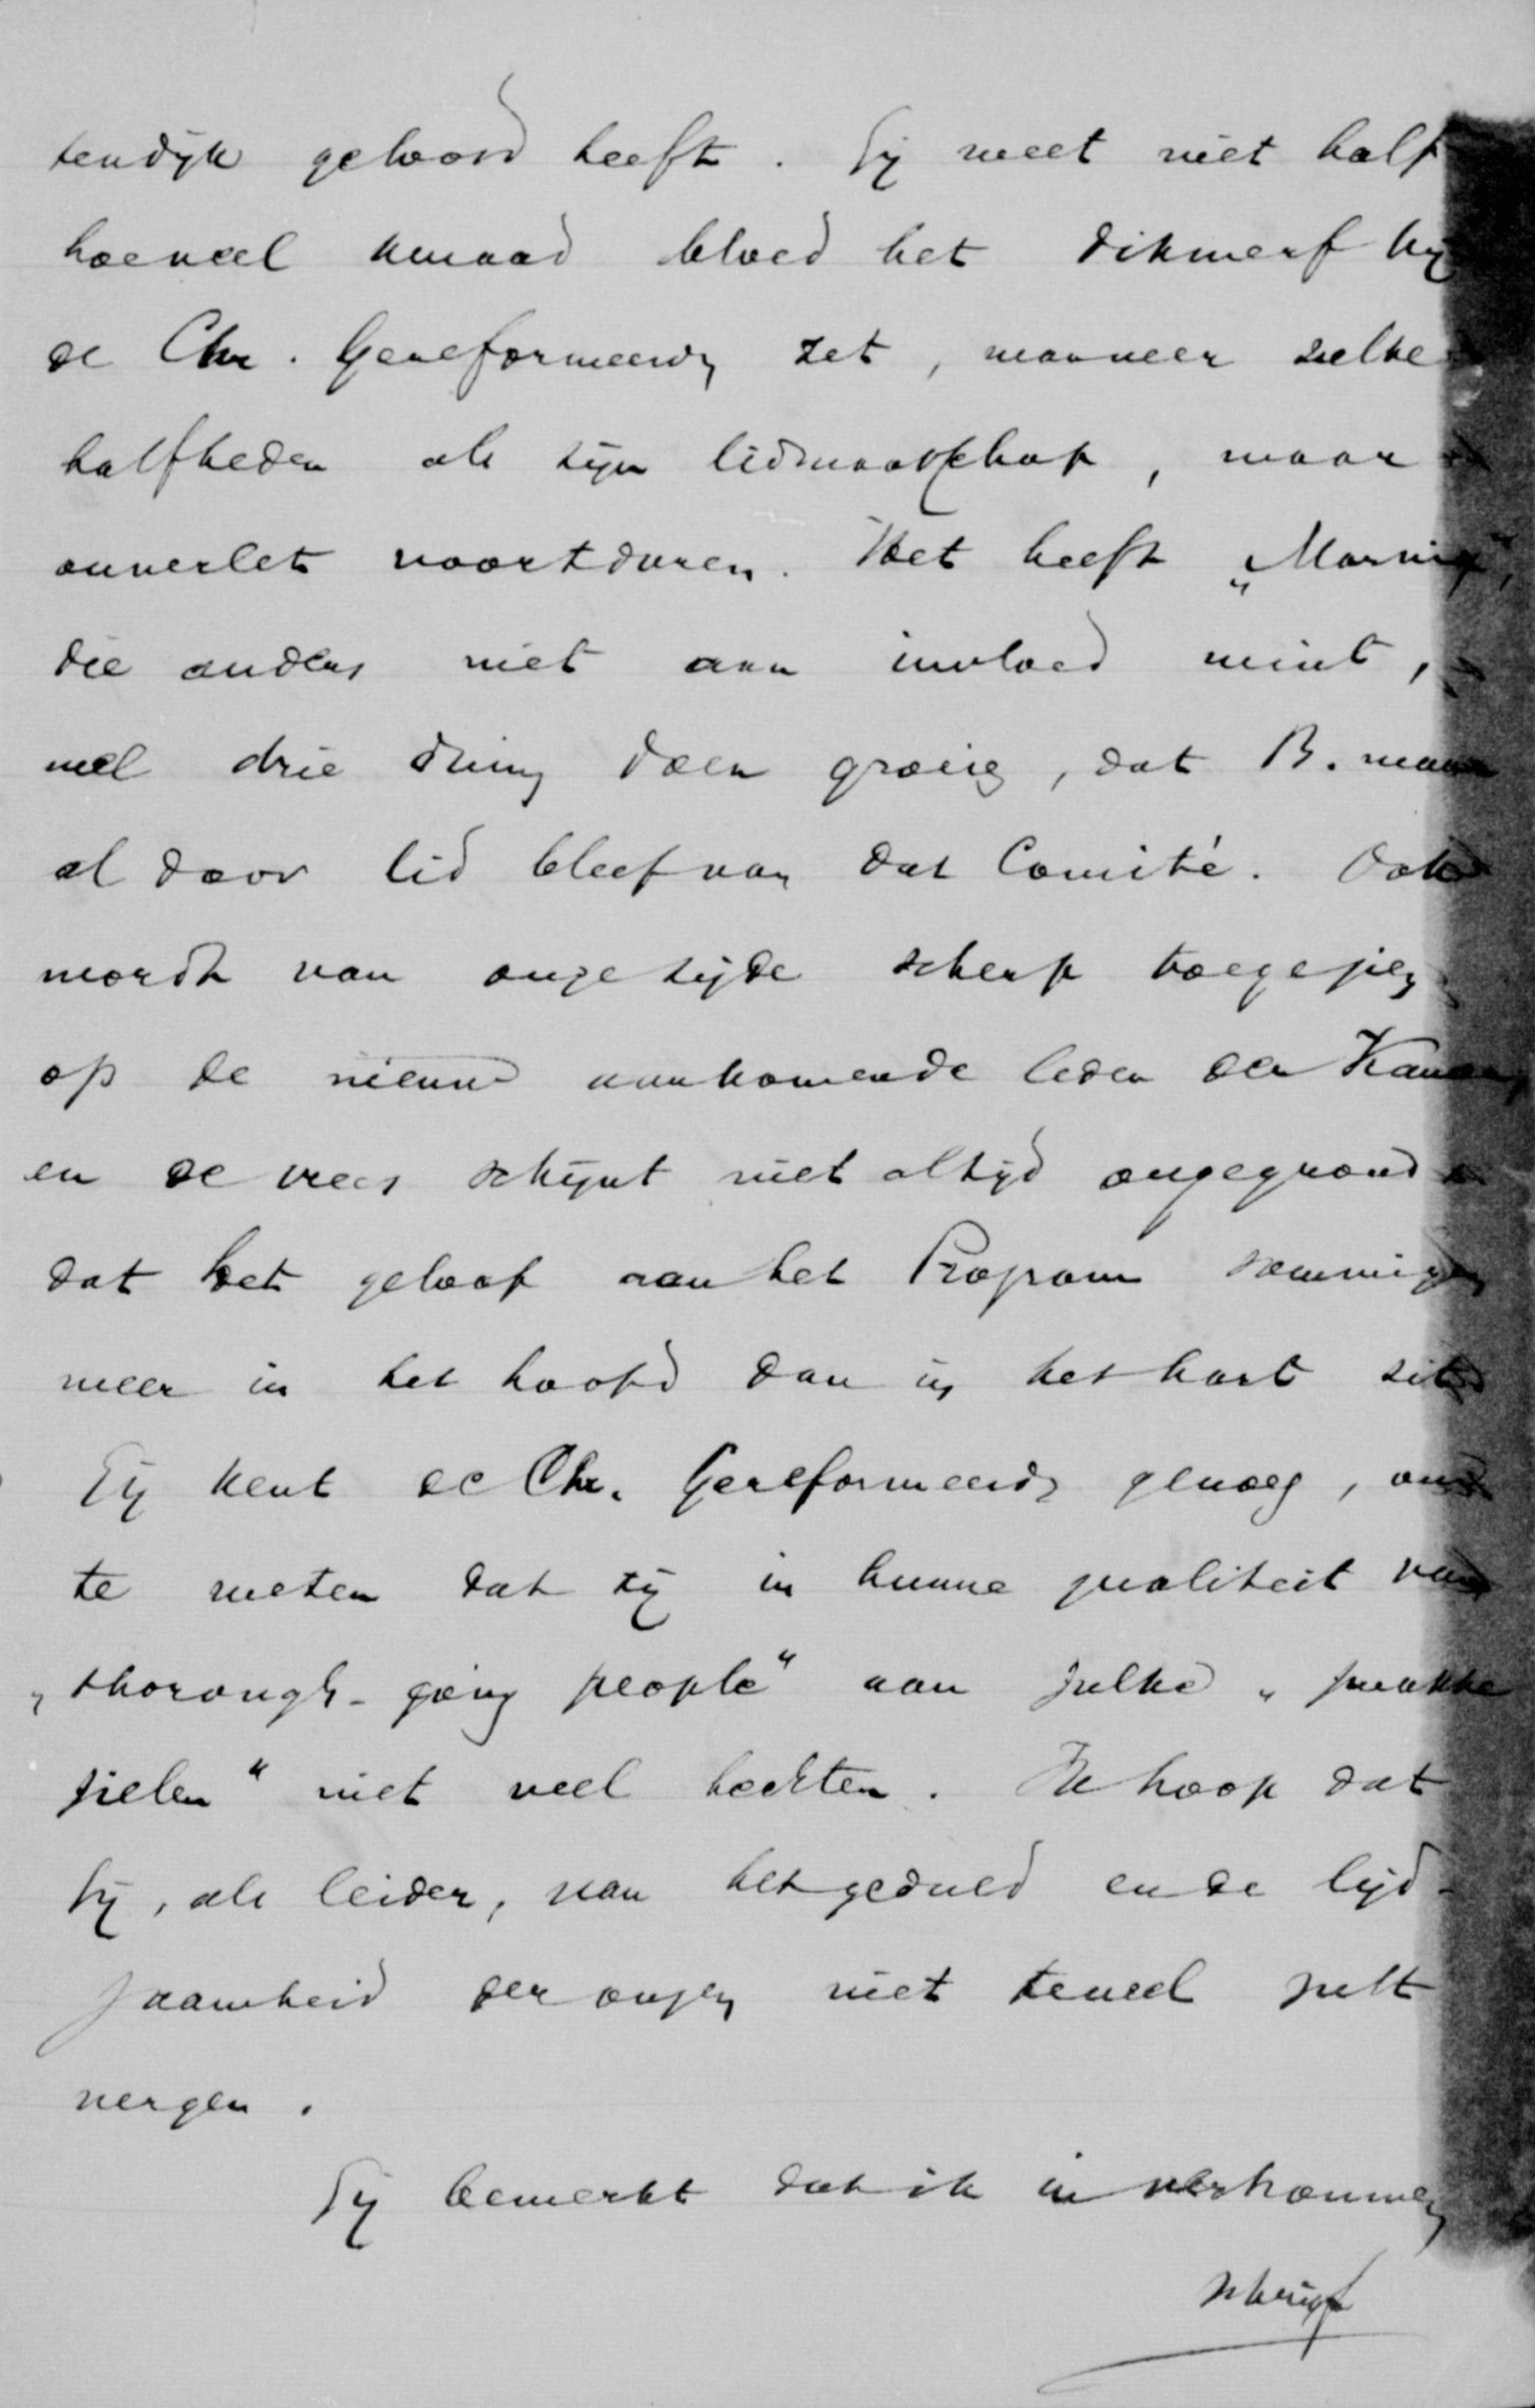 tendijk gehoord heeft. Gij weet niet half
hoeveel kwaad bloed het dikwerf bij
de Chr. Gereformeerden zet, wanneer zulke
halfheden als zijn lidmaatschap, maar
onverlet voortduren. Het heeft „Marnix”,
die anders niet aan invloed wint,
wel drie dring doen groeien, dat B. maar
al door lid bleef van dat Comité. Ook
wordt van onze zijde scherp toegezien
op de nieuw aankomende leden der Kamer,
en de vrees schijnt niet altijd ongegrond
dat het geloof aan het Program sommigen
meer in het hoofd dan in het hart zit
Gij kent de Chr. Gereformeerden genoeg, om
te weten dat zij in hunne qualiteit van
„thorough-going people” aan zulke „zwakke
zielen” niet veel hechten. Ik hoop dat
Gij, als leider, van het geduld en de lijd-
zaamheid der onzen niet teveel zult
vergen.
Gij bemerkt dat ik in verkommen
schrift